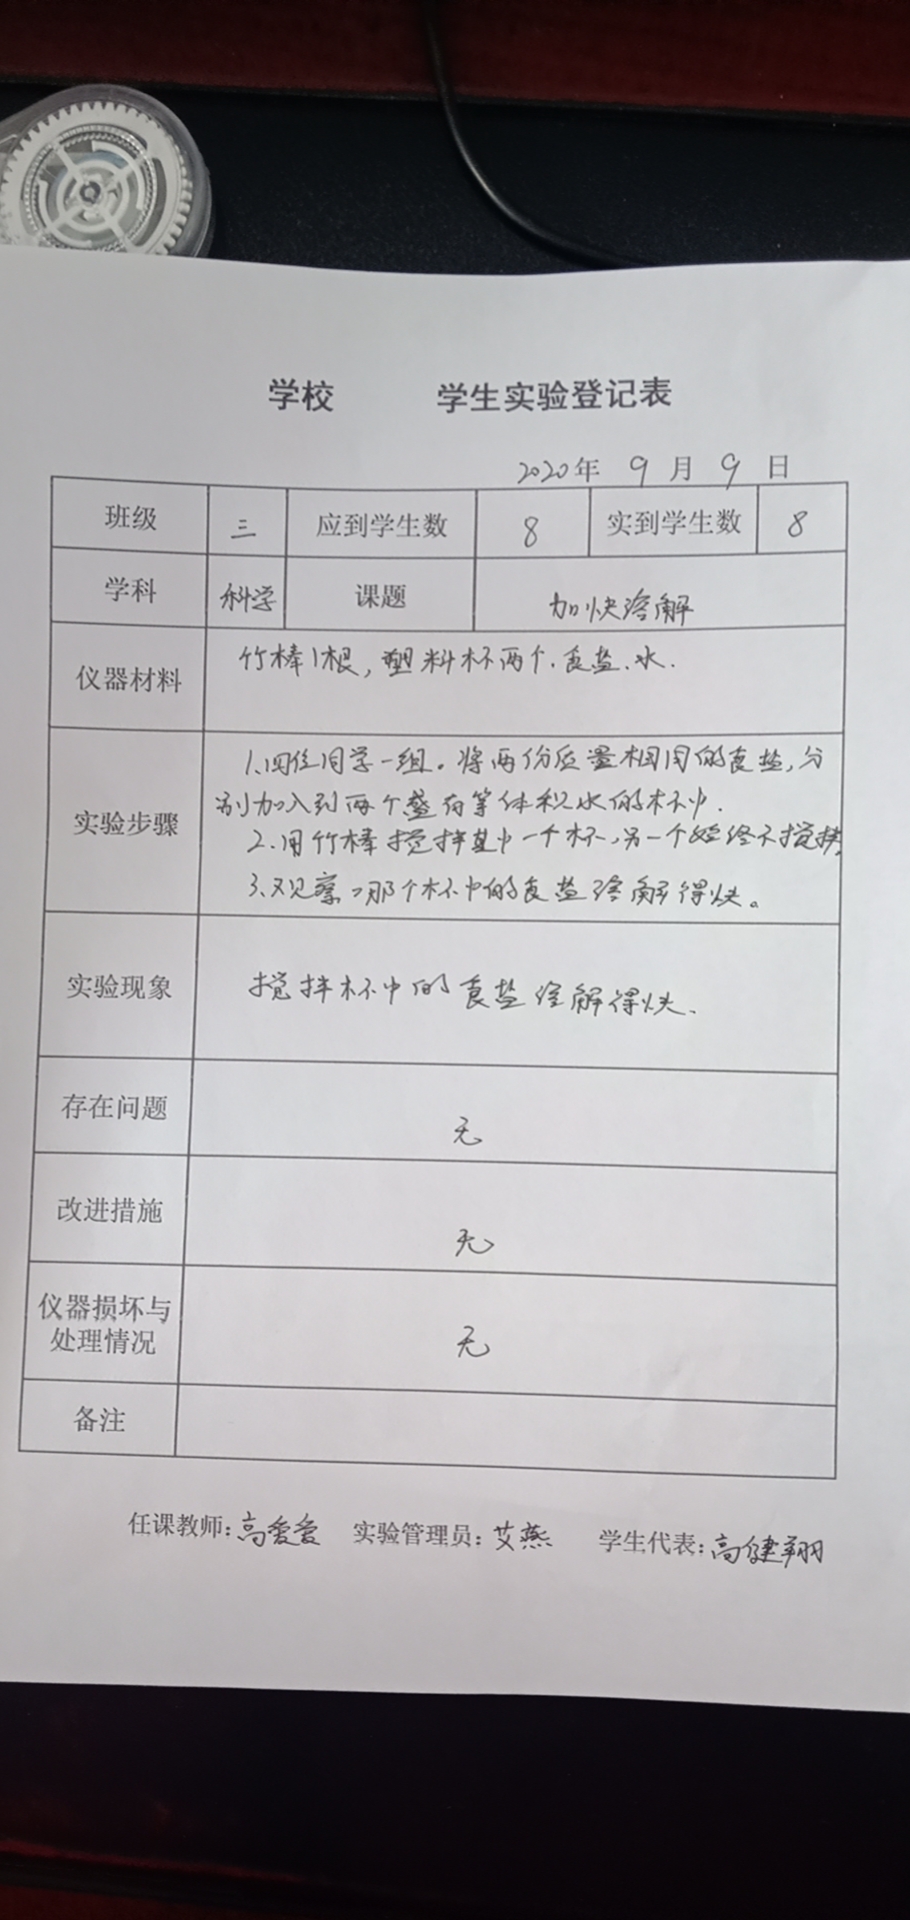 学校 学生实验登记表
2020年 9月 9日
班级 三 应到学生数 8 实到学生数 8
学科 科学 课题 加快溶解
仪器材料 竹棒1根，塑料杯两个、食盐、水.
实验步骤
1、四位同学一组。将两份质量相同的食盐，分
别加入到两个盛有等体积水的杯中.
2、用竹棒搅拌其中一个杯、另一个始终不搅拌.
3、观察、那个杯中的食盐溶解得快。
实验现象 搅拌杯中的食盐溶解得快.
存在问题 无
改进措施 无
仪器损坏与
处理情况 无
备注
任课教师：高爱爱 实验管理员：艾燕 学生代表：高健翔